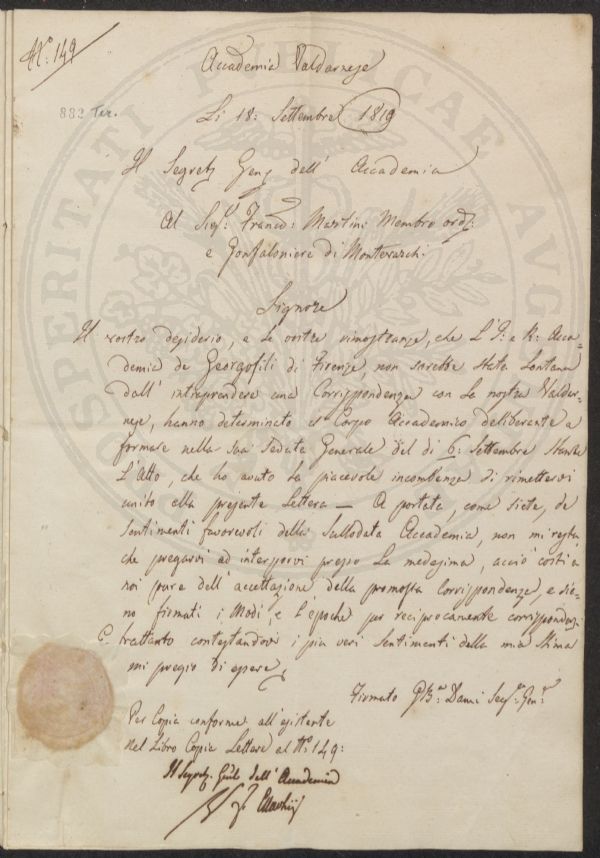 N.º 149
882 Ter.
Accademia Valdarnese
Li 18: Settembre 1819
Il Segret. Gen. dell' Accademia
Al Sig.r Franc.o Martini Membro ord.
e Gonfaloniere di Montevarchi.
Signore
Il vostro desiderio, e le vostre rimostranze, che L'I: e R: Acca-
demia de Georgofili di Firenze non sarebbe stata lontana
dall' intraprendere una Corrispondenza con la nostra Valdar-
nese, hanno determinato il Corpo Accademico deliberante a
formare nella sua Seduta Generale del di 6: Settembre stante
L'Atto, che ho avuto la piacevole incombenza di rimettervi
unito alla presente Lettera — A portata, come siete, de
sentimenti favorevoli della Sullodata Accademia, non mi resta,
che pregarvi ad interporvi presso La medesima, acciò costi a
noi pure dell' accettazione della promossa Corrispondenza, e sie-
no firmati i Modi, e l'epoche per reciprocamente corrispondersi
E trattanto contestandovi i più veri Sentimenti della mia Stima
mi pregio di essere
Firmato G. B.a Dami Seg.o Gen.e
Per Copia conforme all' esistente
nel Libro Copia Lettere al N.º 149:
Il Segret. Gen.le dell' Accademia
PROSPERITATI PUBLICAE AUGENDAE